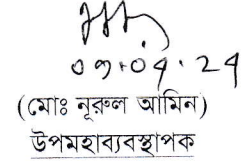 ০৭.০৭.২৪
(মোঃ নূরুল আমিন)
উপমহাব্যবস্থাপক